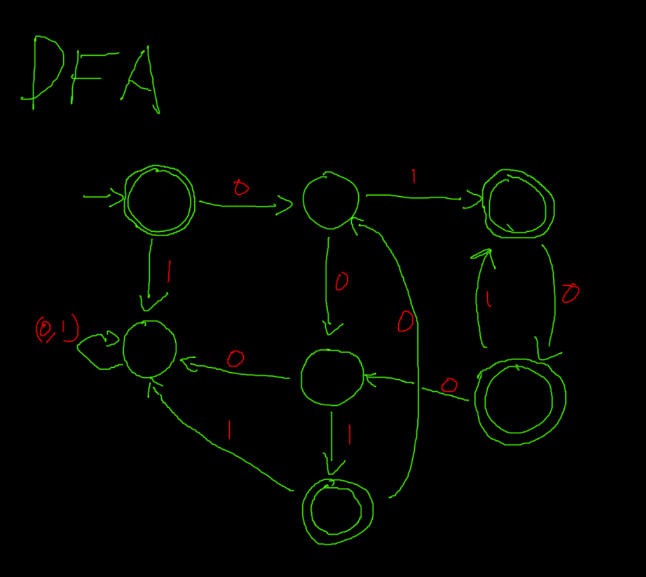 DFA
0
1
1
0
(0,1)
0
0
1
0
0
1
1